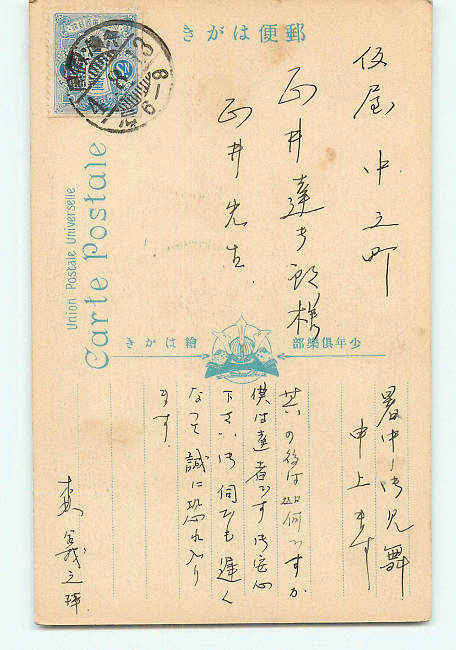 郵便はがき
Union Postale Universelle
Carte Postale
中立町
正井達
郎様
正井先生
少年倶樂部
繪はかき
暑中御見舞
申上ます
其の後は如何ですか
僕は達者です御安心
下さい御伺ひも遅く
なつて誠に恐れ入り
ます
森義之拝